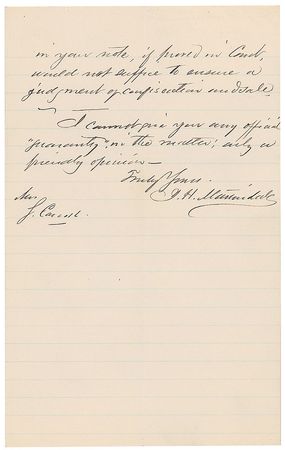 in your note, if proved in Court,
would not suffice to ensure a
judgment of confiscation and sale.
I cannot give you any official
"guaranty" in the matter; only a
friendly opinion —
Truly Yours.
J. H. Martindale
Mrs.
J.